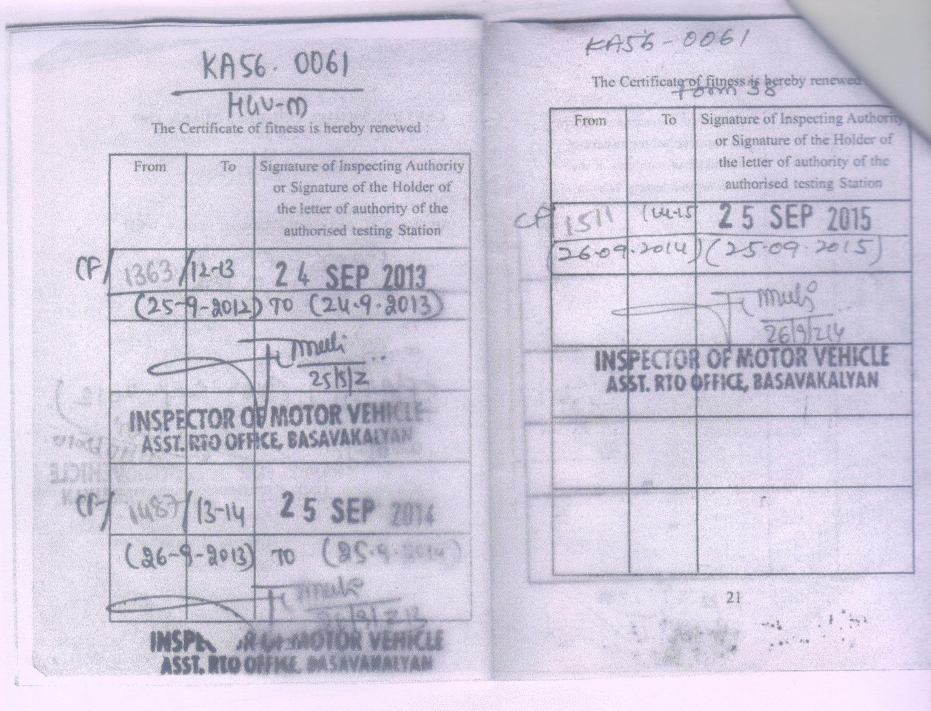 KA56. 0061
HGV-M
The Certificate of fitness is hereby renewed :
From To Signature of Inspecting Authority
or Signature of the Holder of
the letter of authority of the
authorised testing Station
CF/ 1363/12-13 24 SEP 2013
(25-9-2012) TO (24.9.2013)
INSPECTOR OF MOTOR VEHICLE
ASST. RTO OFFICE, BASAVAKALYAN
CF- 1487/13-14 25 SEP 2014
(26-9-2013) TO (25.9.2014)
INSPE OR OF MOTOR VEHICLE
ASST. RTO OFFICE, BASAVAKALYAN
KA56-0061
The Certificate of fitness is hereby renewed
Form 38
From To Signature of Inspecting Authority
or Signature of the Holder of
the letter of authority of the
authorised testing Station
CF 1511 14-15 25 SEP 2015
(26-09-2014) (25-09-2015)
INSPECTOR OF MOTOR VEHICLE
ASST. RTO OFFICE, BASAVAKALYAN
21